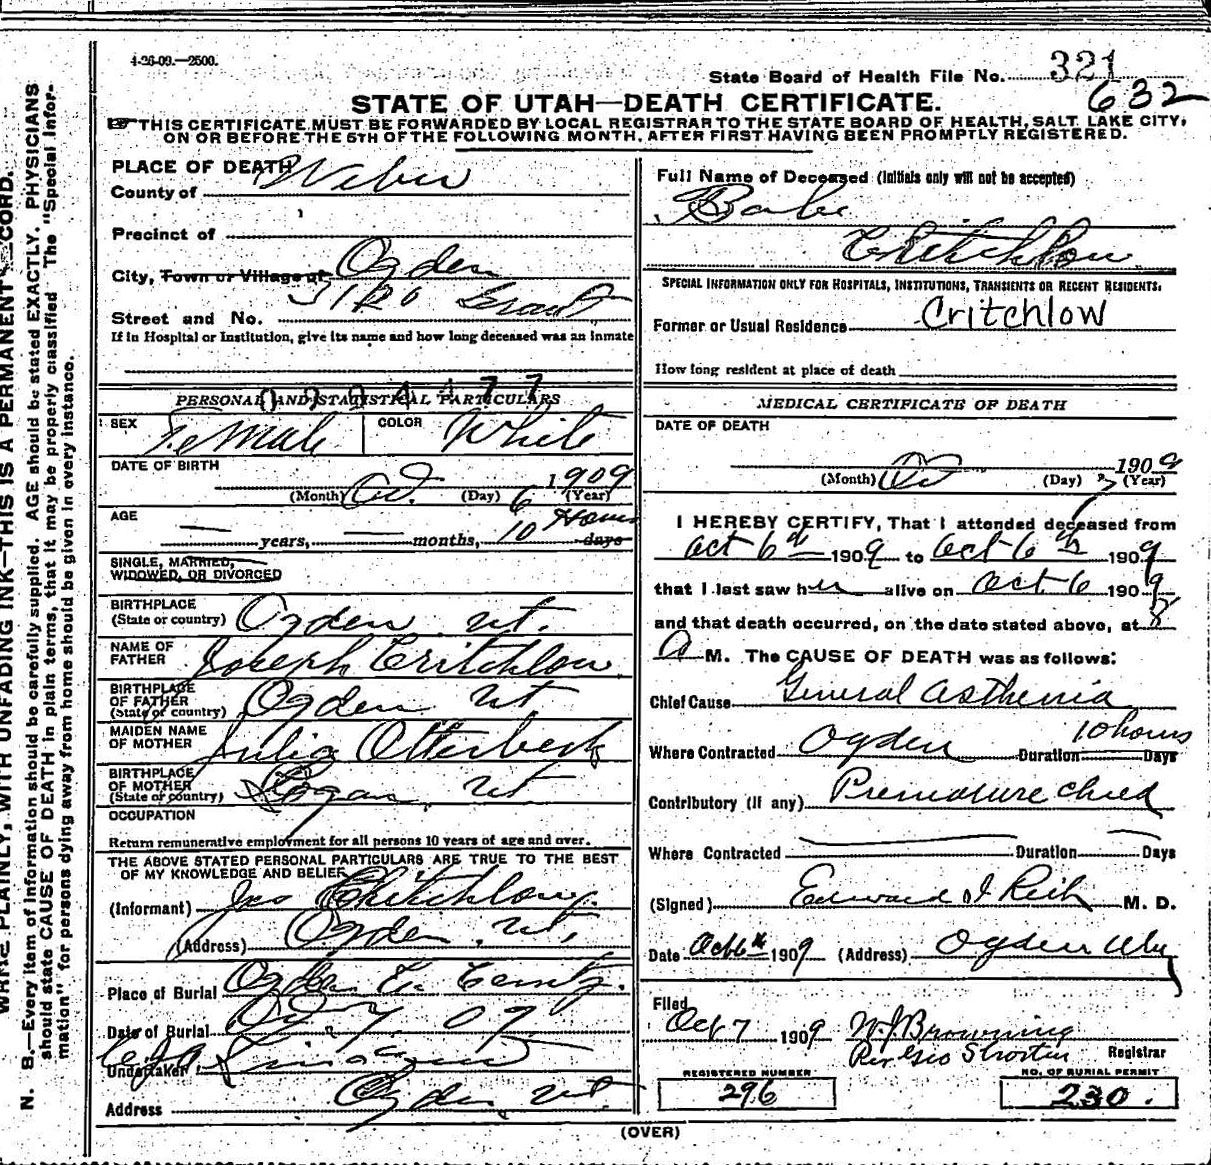 4-26-09.—2500.
State Board of Health File No. 321
632
STATE OF UTAH—DEATH CERTIFICATE.
THIS CERTIFICATE MUST BE FORWARDED BY LOCAL REGISTRAR TO THE STATE BOARD OF HEALTH, SALT LAKE CITY,
ON OR BEFORE THE 5TH OF THE FOLLOWING MONTH, AFTER FIRST HAVING BEEN PROMPTLY REGISTERED.
PLACE OF DEATH
County of Weber
Precinct of
City, Town or Village of Ogden
Street and No. Grant
If in Hospital or Institution, give its name and how long deceased was an inmate
PERSONAL AND STATISTICAL PARTICULARS
SEX Female COLOR White
DATE OF BIRTH
(Month) Oct. (Day) 6 1909 (Year)
AGE
— years, — months, 10 Hours days
SINGLE, MARRIED,
WIDOWED, OR DIVORCED
BIRTHPLACE
(State or country) Ogden Ut.
NAME OF
FATHER Joseph Critchlow
BIRTHPLACE
OF FATHER
(State or country) Ogden Ut
MAIDEN NAME
OF MOTHER Julia Otterbeck
BIRTHPLACE
OF MOTHER
(State or country) Logan, Ut
OCCUPATION
Return remunerative employment for all persons 10 years of age and over.
THE ABOVE STATED PERSONAL PARTICULARS ARE TRUE TO THE BEST
OF MY KNOWLEDGE AND BELIEF
(Informant) Jos Critchlow.
(Address) Ogden, Ut.
Place of Burial Ogden
Date of Burial Oct 7, 09
Undertaker
Address Ogden, Ut.
Full Name of Deceased (Initials only will not be accepted)
Babe
Critchlow
SPECIAL INFORMATION ONLY FOR HOSPITALS, INSTITUTIONS, TRANSIENTS OR RECENT RESIDENTS:
Former or Usual Residence Critchlow
How long resident at place of death
MEDICAL CERTIFICATE OF DEATH
DATE OF DEATH
1909
(Month) Oct (Day) 7 (Year)
I HEREBY CERTIFY, That I attended deceased from
Oct 6th 1909 to Oct 6th 1909
that I last saw her alive on Oct 6 1909
and that death occurred, on the date stated above, at 8
A M. The CAUSE OF DEATH was as follows:
Chief Cause General Asthenia
Where Contracted Ogden Duration 10 hours Days
Contributory (if any) Premature child
Where Contracted — Duration — Days
(Signed) Edward I Rich M. D.
Date Oct 6th 1909 (Address) Ogden Utah
Filed
Oct 7 1909 W. J. Browning
Registrar
REGISTERED NUMBER
296
NO. OF BURIAL PERMIT
230.
(OVER)
WRITE PLAINLY, WITH UNFADING INK—THIS IS A PERMANENT RECORD.
N. B.—Every item of information should be carefully supplied. AGE should be stated EXACTLY. PHYSICIANS
should state CAUSE OF DEATH in plain terms, that it may be properly classified. The "Special Infor-
mation" for persons dying away from home should be given in every instance.